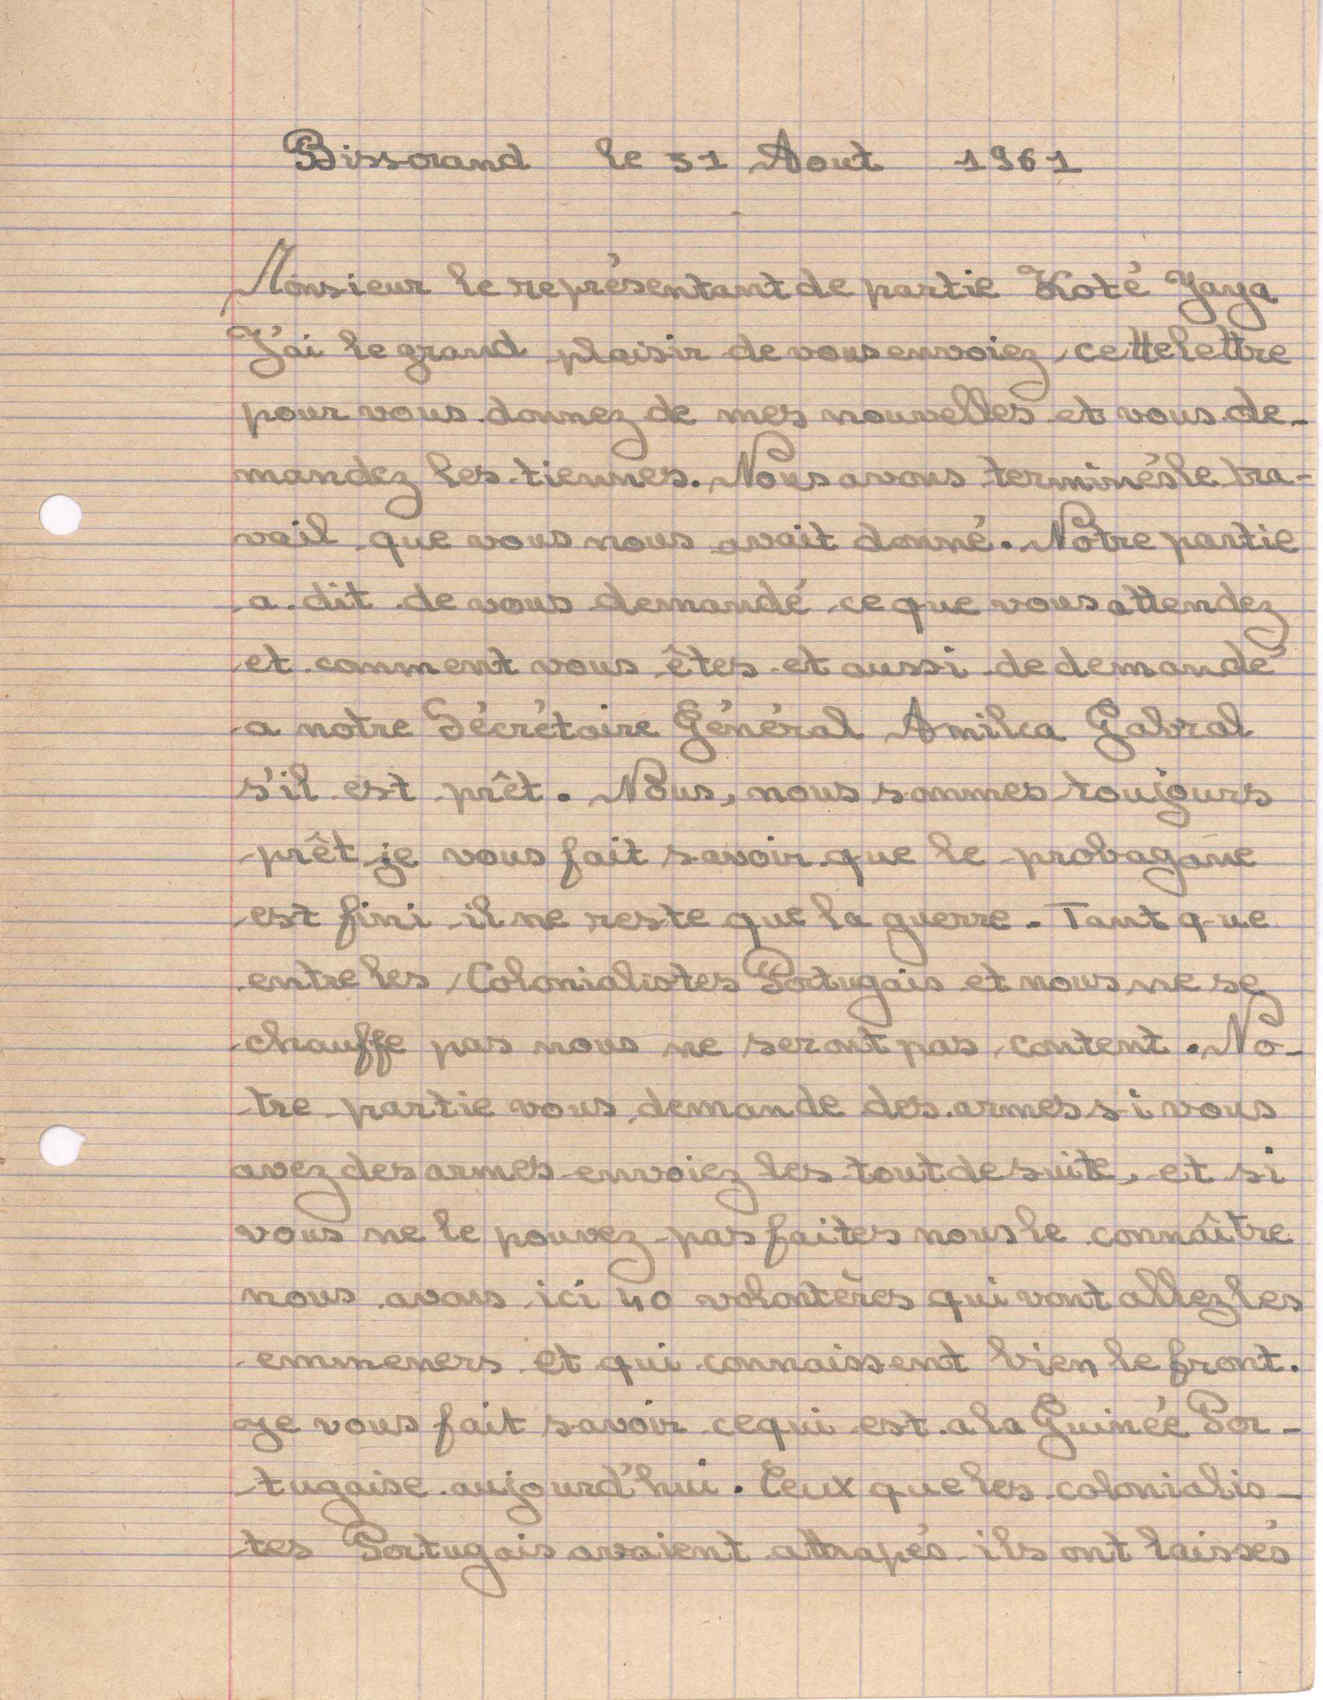 Bissorand le 31 Aout 1961
Monsieur le représentant de partie Koté Yaya
J'ai le grand plaisir de vous envoiez cette lettre
pour vous donnez de mes nouvelles et vous de-
mandez les tiennes. Nous avons terminés le tra-
vail que vous nous avait donné. Notre partie
a dit de vous demandé ce que vous attendez
et comment vous êtes et aussi de demandé
a notre Sécrétaire Général Amilca Gabral
s'il est prêt. Nous, nous sommes toujours
prêt je vous fait savoir que le probagane
est fini il ne reste que la guerre. Tant que
entre les Colonialistes Portugais et nous ne se
chauffe pas nous ne seront pas content. No-
tre partie vous demande des armes si vous
avez des armes envoiez les tout de suite, et si
vous ne le pouvez pas faites nous le connaître
nous avons ici 40 volontères qui vont allez les
emmeners et qui connaissent bien le front.
Je vous fait savoir ce qui est a la Guinée Por-
tugaise aujourd'hui. Ceux que les colonialis-
tes Portugais avaient attrapés ils ont laissés